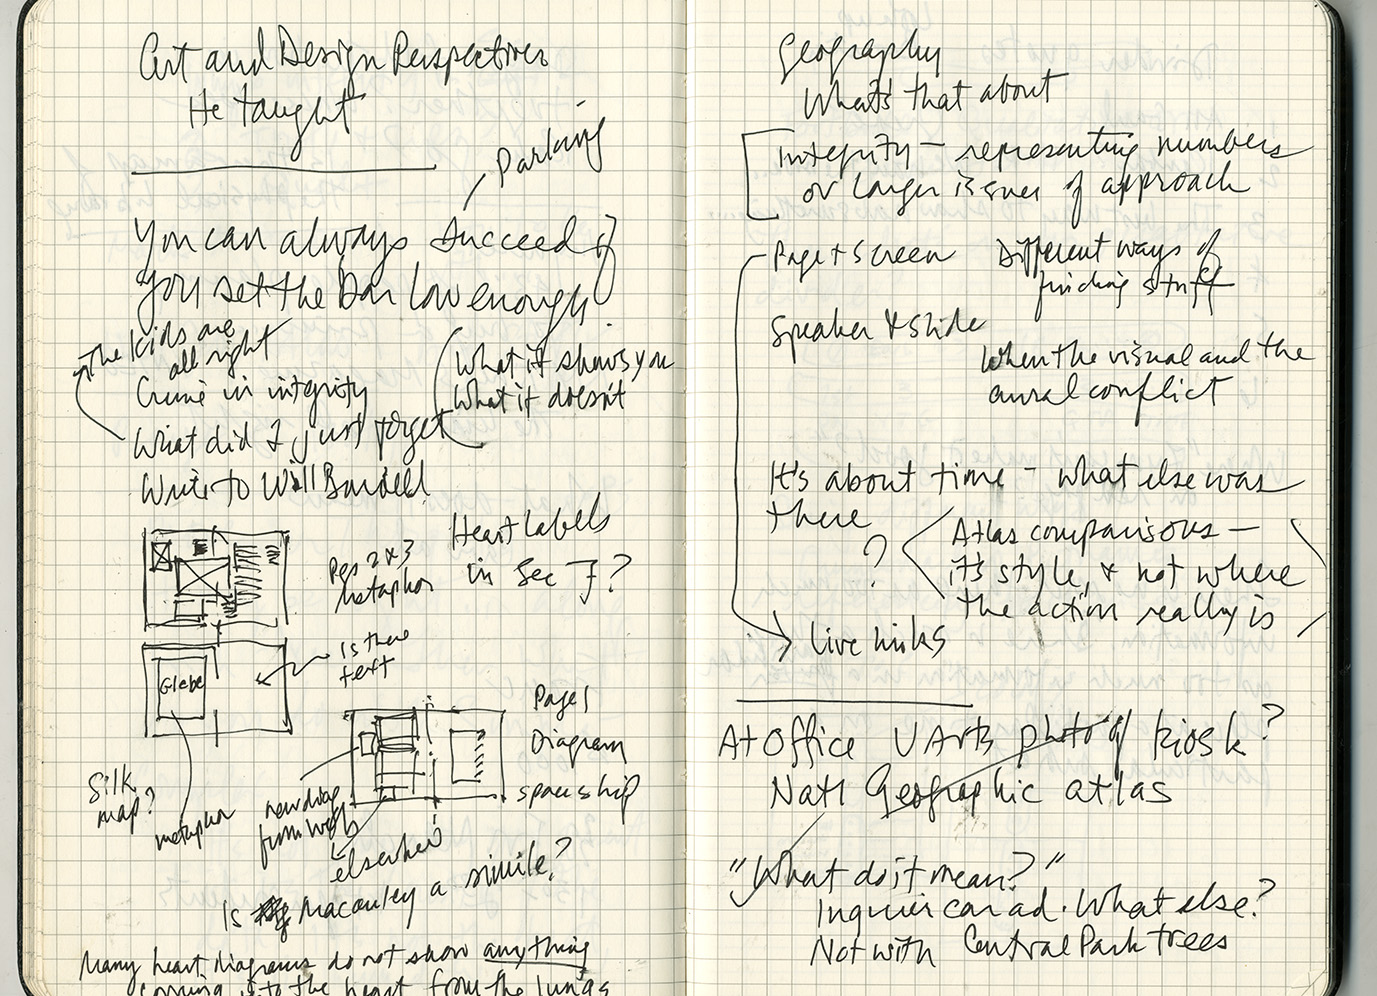 Art and Design Perspectives
He taught
Parking
You can always succeed if
you set the bar low enough.
The kids are
all right
Crime in integrity
What did I just forget
Write to Will
What it shows you
What it doesn't
Heart labels
in Sec 7?
2 x 3
metaphor
Globe
Is there
text
Silk
map?
metaphor
new diag
from web
elsewhere
Page 1
Diagram
spaceship
Is Macauley a simile?
Many heart diagrams do not show anything
coming into the heart from the lungs
Geography
What's that about
Integrity — representing numbers
or larger issues of approach
Page + Screen
Different ways of
finding stuff
Speaker + slide
When the visual and the
aural conflict
It's about time — what else was
there
?
Atlas comparisons —
it's style, + not where
the action really is
Live links
At Office UArts photo of kiosk?
Natl Geographic atlas
"What do it mean?"
Inquirer car ad. What else?
Not with Central Park trees